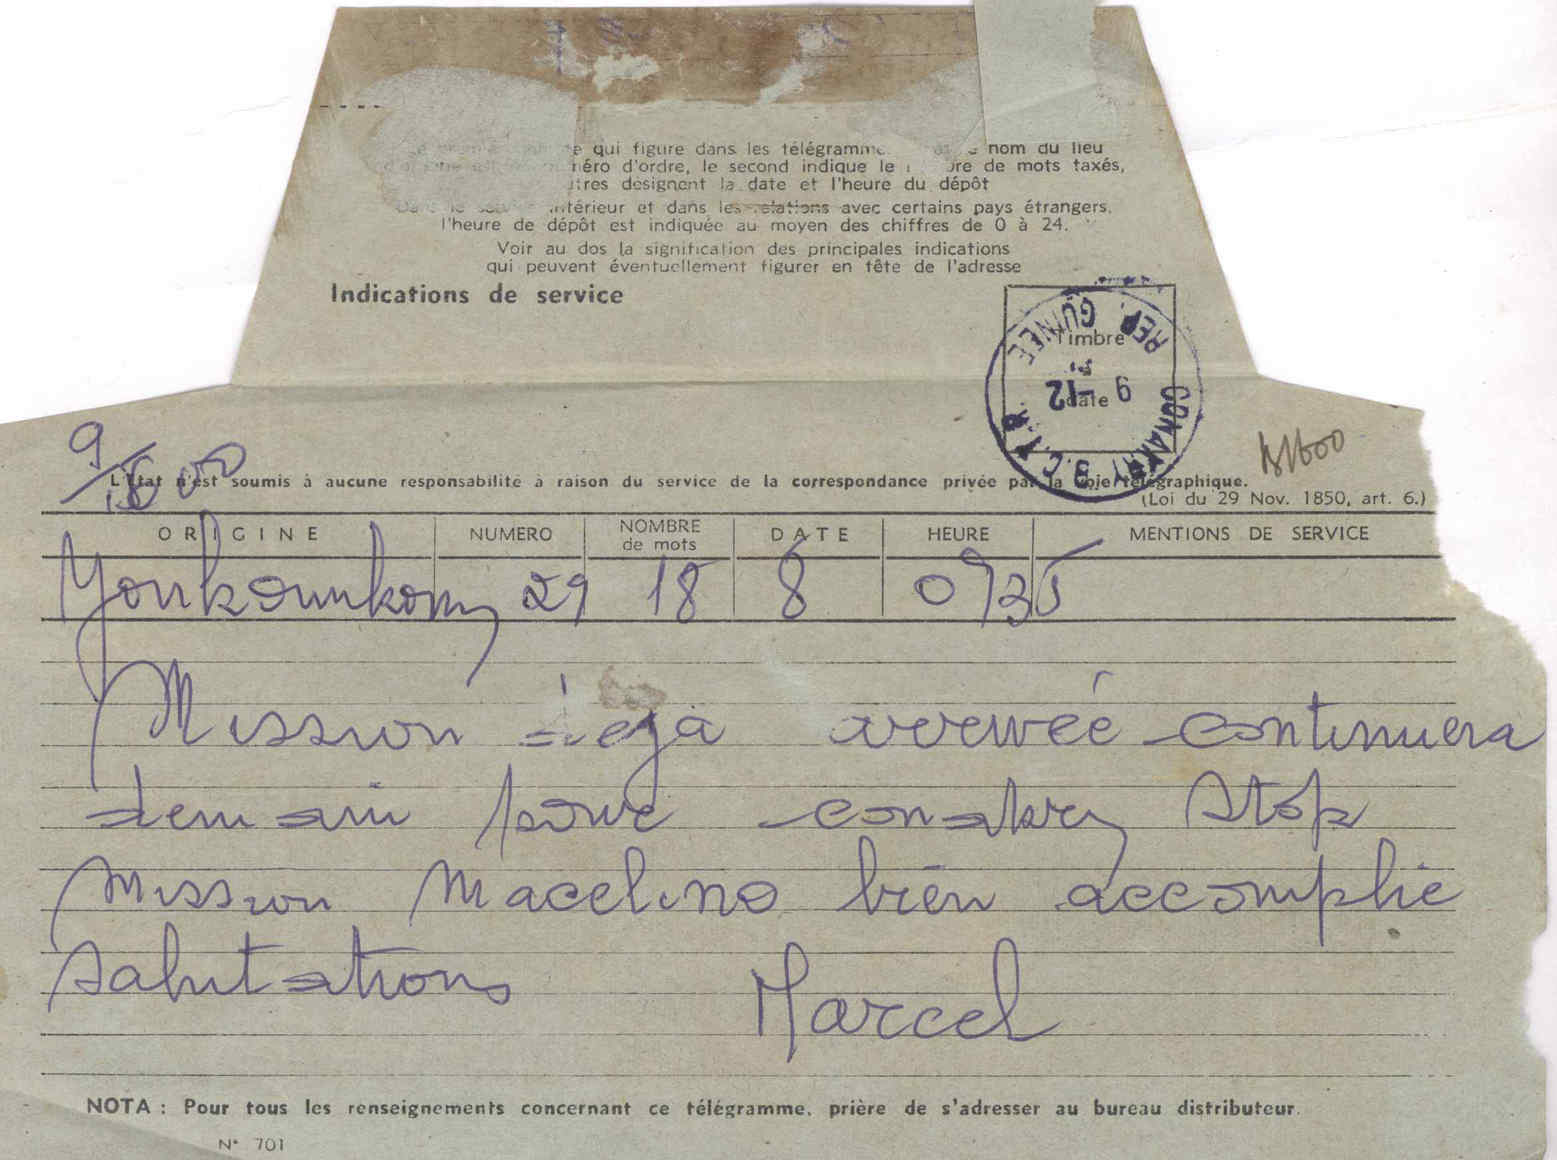 qui figure dans les télégramme nom du lieu
d'ordre, le second indique le de mots taxés,
designent la date et l'heure du dépôt
intérieur et dans les relations avec certains pays étrangers,
l'heure de dépôt est indiquée au moyen des chiffres de 0 à 24.
Voir au dos la signification des principales indications
qui peuvent éventuellement figurer en tête de l'adresse
Indications de service
Timbre
date
REP. GUINEE
9 -12
CONAKRY
9/
L'Etat n'est soumis à aucune responsabilité à raison du service de la correspondance privée par la voie télégraphique.
(Loi du 29 Nov. 1850, art. 6.)
ORIGINE NUMERO NOMBRE de mots DATE HEURE MENTIONS DE SERVICE
Youkounkoun 29 18 8 0935
Mission déjà arrivée continuera
demain pour conakry Stop
Mission Macelino bien accomplie
Salutations Marcel
NOTA : Pour tous les renseignements concernant ce télégramme, prière de s'adresser au bureau distributeur.
N° 701